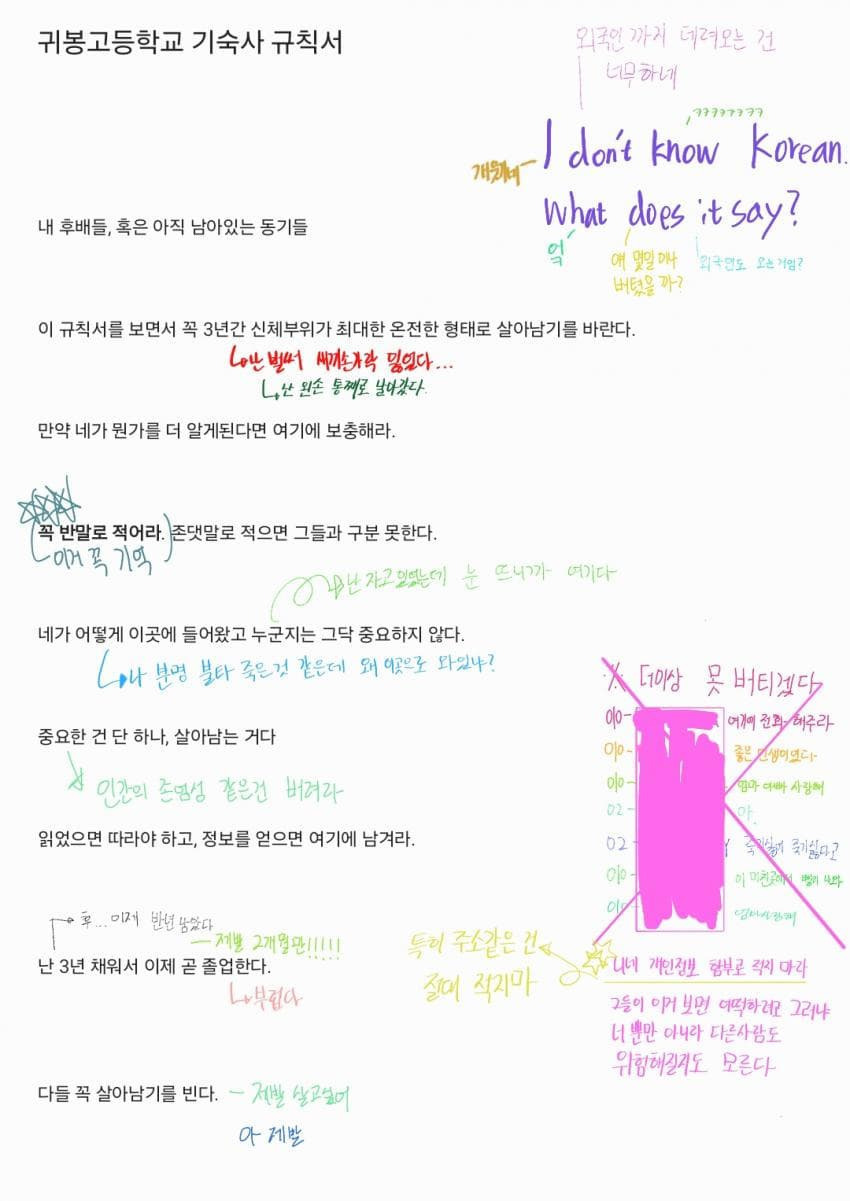 귀봉고등학교 기숙사 규칙서
외국인 까지 데려오는 건
너무하네
ㅋㅋㅋㅋㅋㅋㅋㅋ
I don't know Korean.
개웃기네
What does it say?
억
얘 몇일이나
버텼을까?
외국인도 오는거임?
내 후배들, 혹은 아직 남아있는 동기들
이 규칙서를 보면서 꼭 3년간 신체부위가 최대한 온전한 형태로 살아남기를 바란다.
난 벌써 새끼손가락 잃었다...
난 왼손 통째로 날아갔다.
만약 네가 뭔가를 더 알게된다면 여기에 보충해라.
꼭 반말로 적어라. 존댓말로 적으면 그들과 구분 못한다.
이거 꼭 기억
난 자고있었는데 눈 뜨니까 여기다
네가 어떻게 이곳에 들어왔고 누군지는 그닥 중요하지 않다.
나 분명 불타 죽은것 같은데 왜 이곳으로 와있냐?
※ 더이상 못 버티겠다
중요한 건 단 하나, 살아남는 거다
인간의 존엄성 같은건 버려라
010- 여기에 전화 해주라
010- 좋은 인생이었다
010- 엄마 아빠 사랑해
02- 아.
02- 죽기싫어 죽기싫다고
010- 이 미친곳에서 빨리
010-
읽었으면 따라야 하고, 정보를 얻으면 여기에 남겨라.
후...이제 반년 남았다
제발 2개월만!!!!!
난 3년 채워서 이제 곧 졸업한다.
부럽다
특히 주소같은 건
절대 적지마
니네 개인정보 함부로 적지 마라
그들이 이거 보면 어떡하려고 그러냐
너 뿐만 아니라 다른사람도
위험해질지도 모른다
다들 꼭 살아남기를 빈다.
제발 살고싶어
아 제발